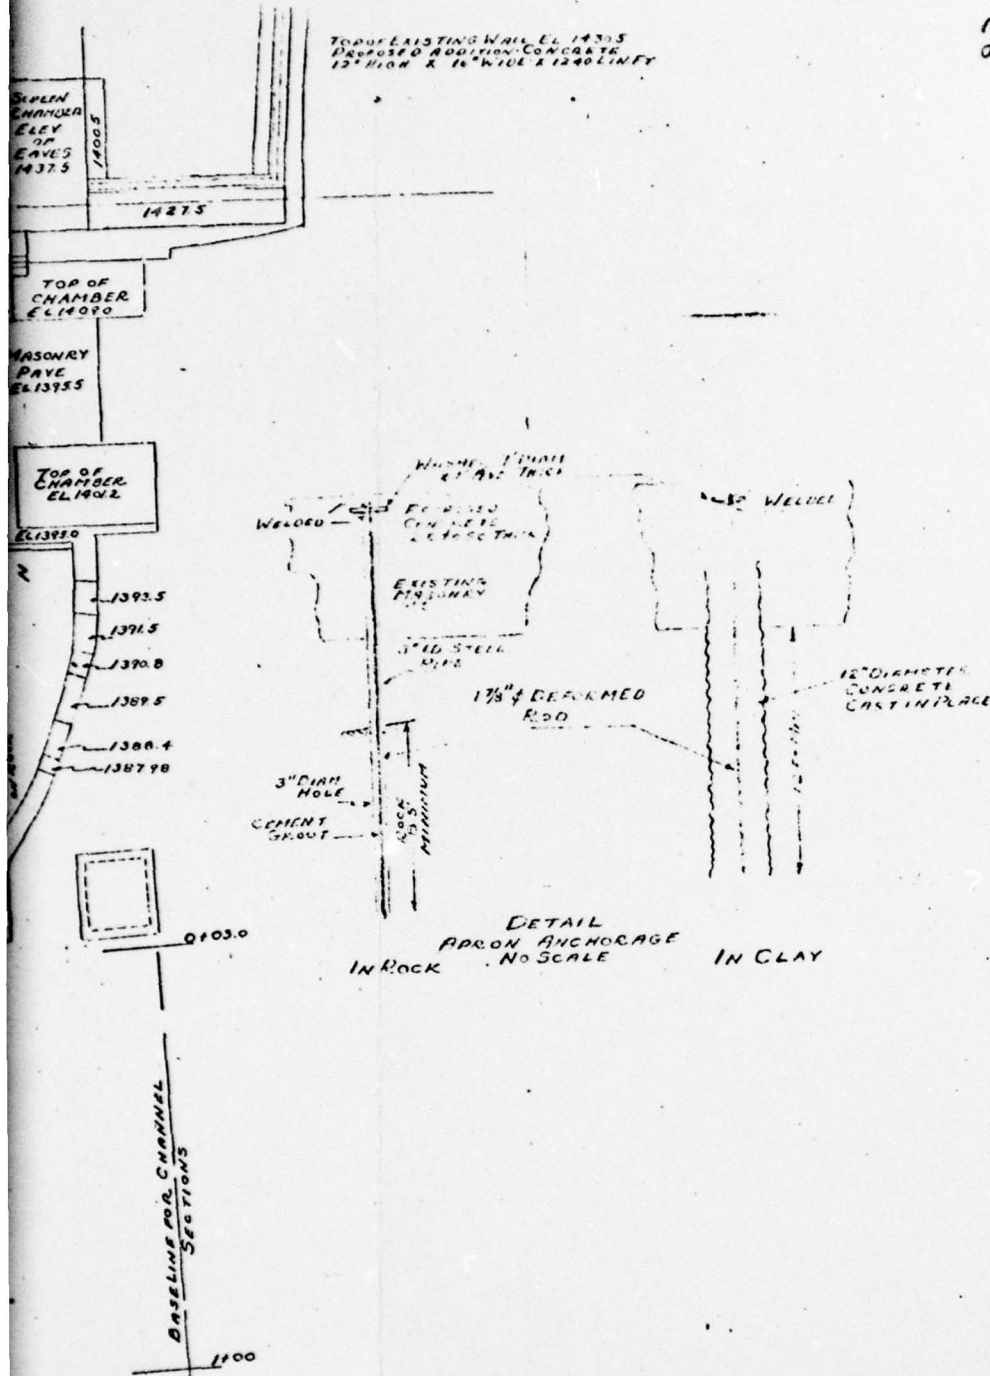 TOP OF EXISTING WALL EL 1430.5
PROPOSED ADDITION-CONCRETE
12" HIGH & 16" WIDE & 1240 LIN FT
SCREEN
CHAMBER
ELEV
OF
EAVES
1437.5
1400.5
1427.5
TOP OF
CHAMBER
EL 1409.0
MASONRY
PAVE
EL 1395.5
TOP OF
CHAMBER
EL 1401.2
EL 1395.0
N
1393.5
1391.5
1390.8
1389.5
1388.4
1387.98
WASHER DIAM
THICK
WELDED
CONCRETE
THICK
EXISTING
MASONRY
3" ID STEEL
PIPE
1 7/8" ϕ DEFORMED
ROD
3" DIAM
HOLE
CEMENT
GROUT
ROCK
MINIMUM
WELDED
12" DIAMETER
CONCRETE
CAST IN PLACE
DETAIL
APRON ANCHORAGE
NO SCALE
IN ROCK
IN CLAY
0+03.0
BASELINE FOR CHANNEL
SECTIONS
1+00